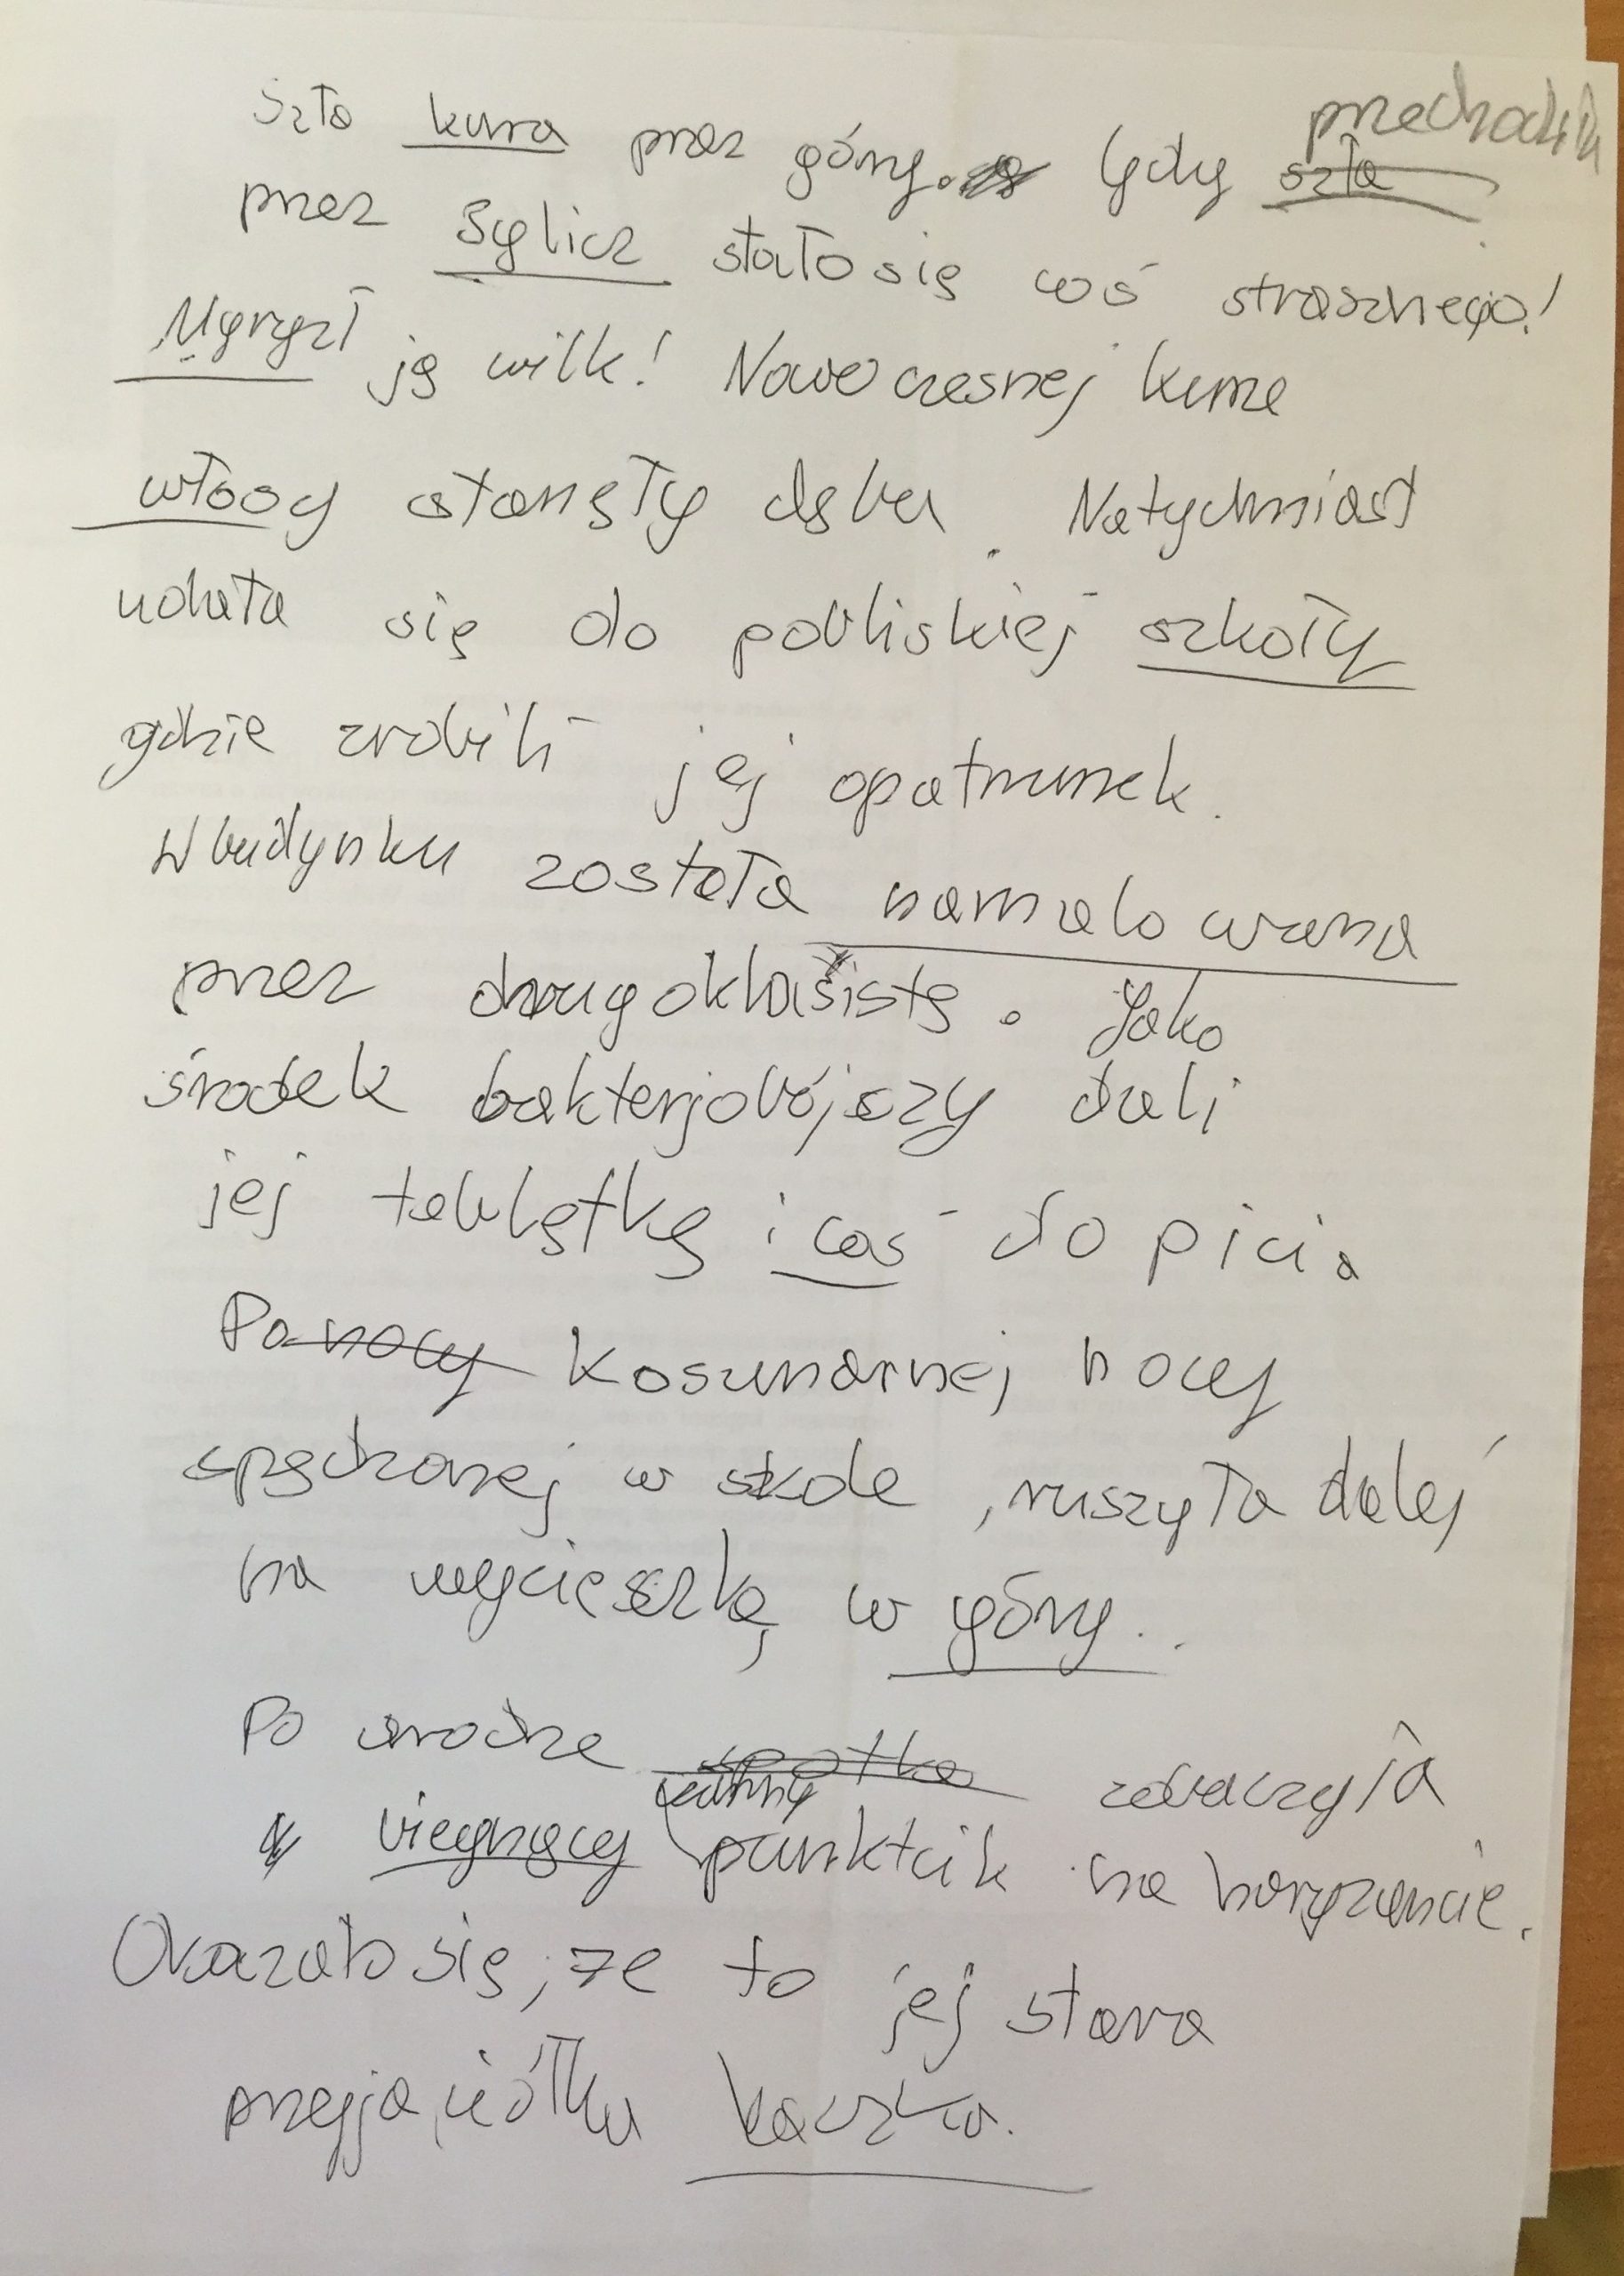 przechodziła
Szła kura przez góry. Gdy szła
przez Sylicz stało się coś strasznego!
Ugryzł ją wilk! Nowoczesnej kurze
włosy stanęły dęba. Natychmiast
udała się do pobliskiej szkoły
gdzie zrobili jej opatrunek.
W budynku została namalowana
przez drugoklasistę. Jako
środek bakterjobójczy dali
jej tabletkę i coś do picia
Po nocy koszmarnej nocy
spędzonej w szkole, ruszyła dalej
na wycieszkę w góry..
Po drodze spotka zobaczyła
biegnący jedynie punkcik na horyzoncie.
Okazało się, że to jej stara
przyjaciółka kaczka.